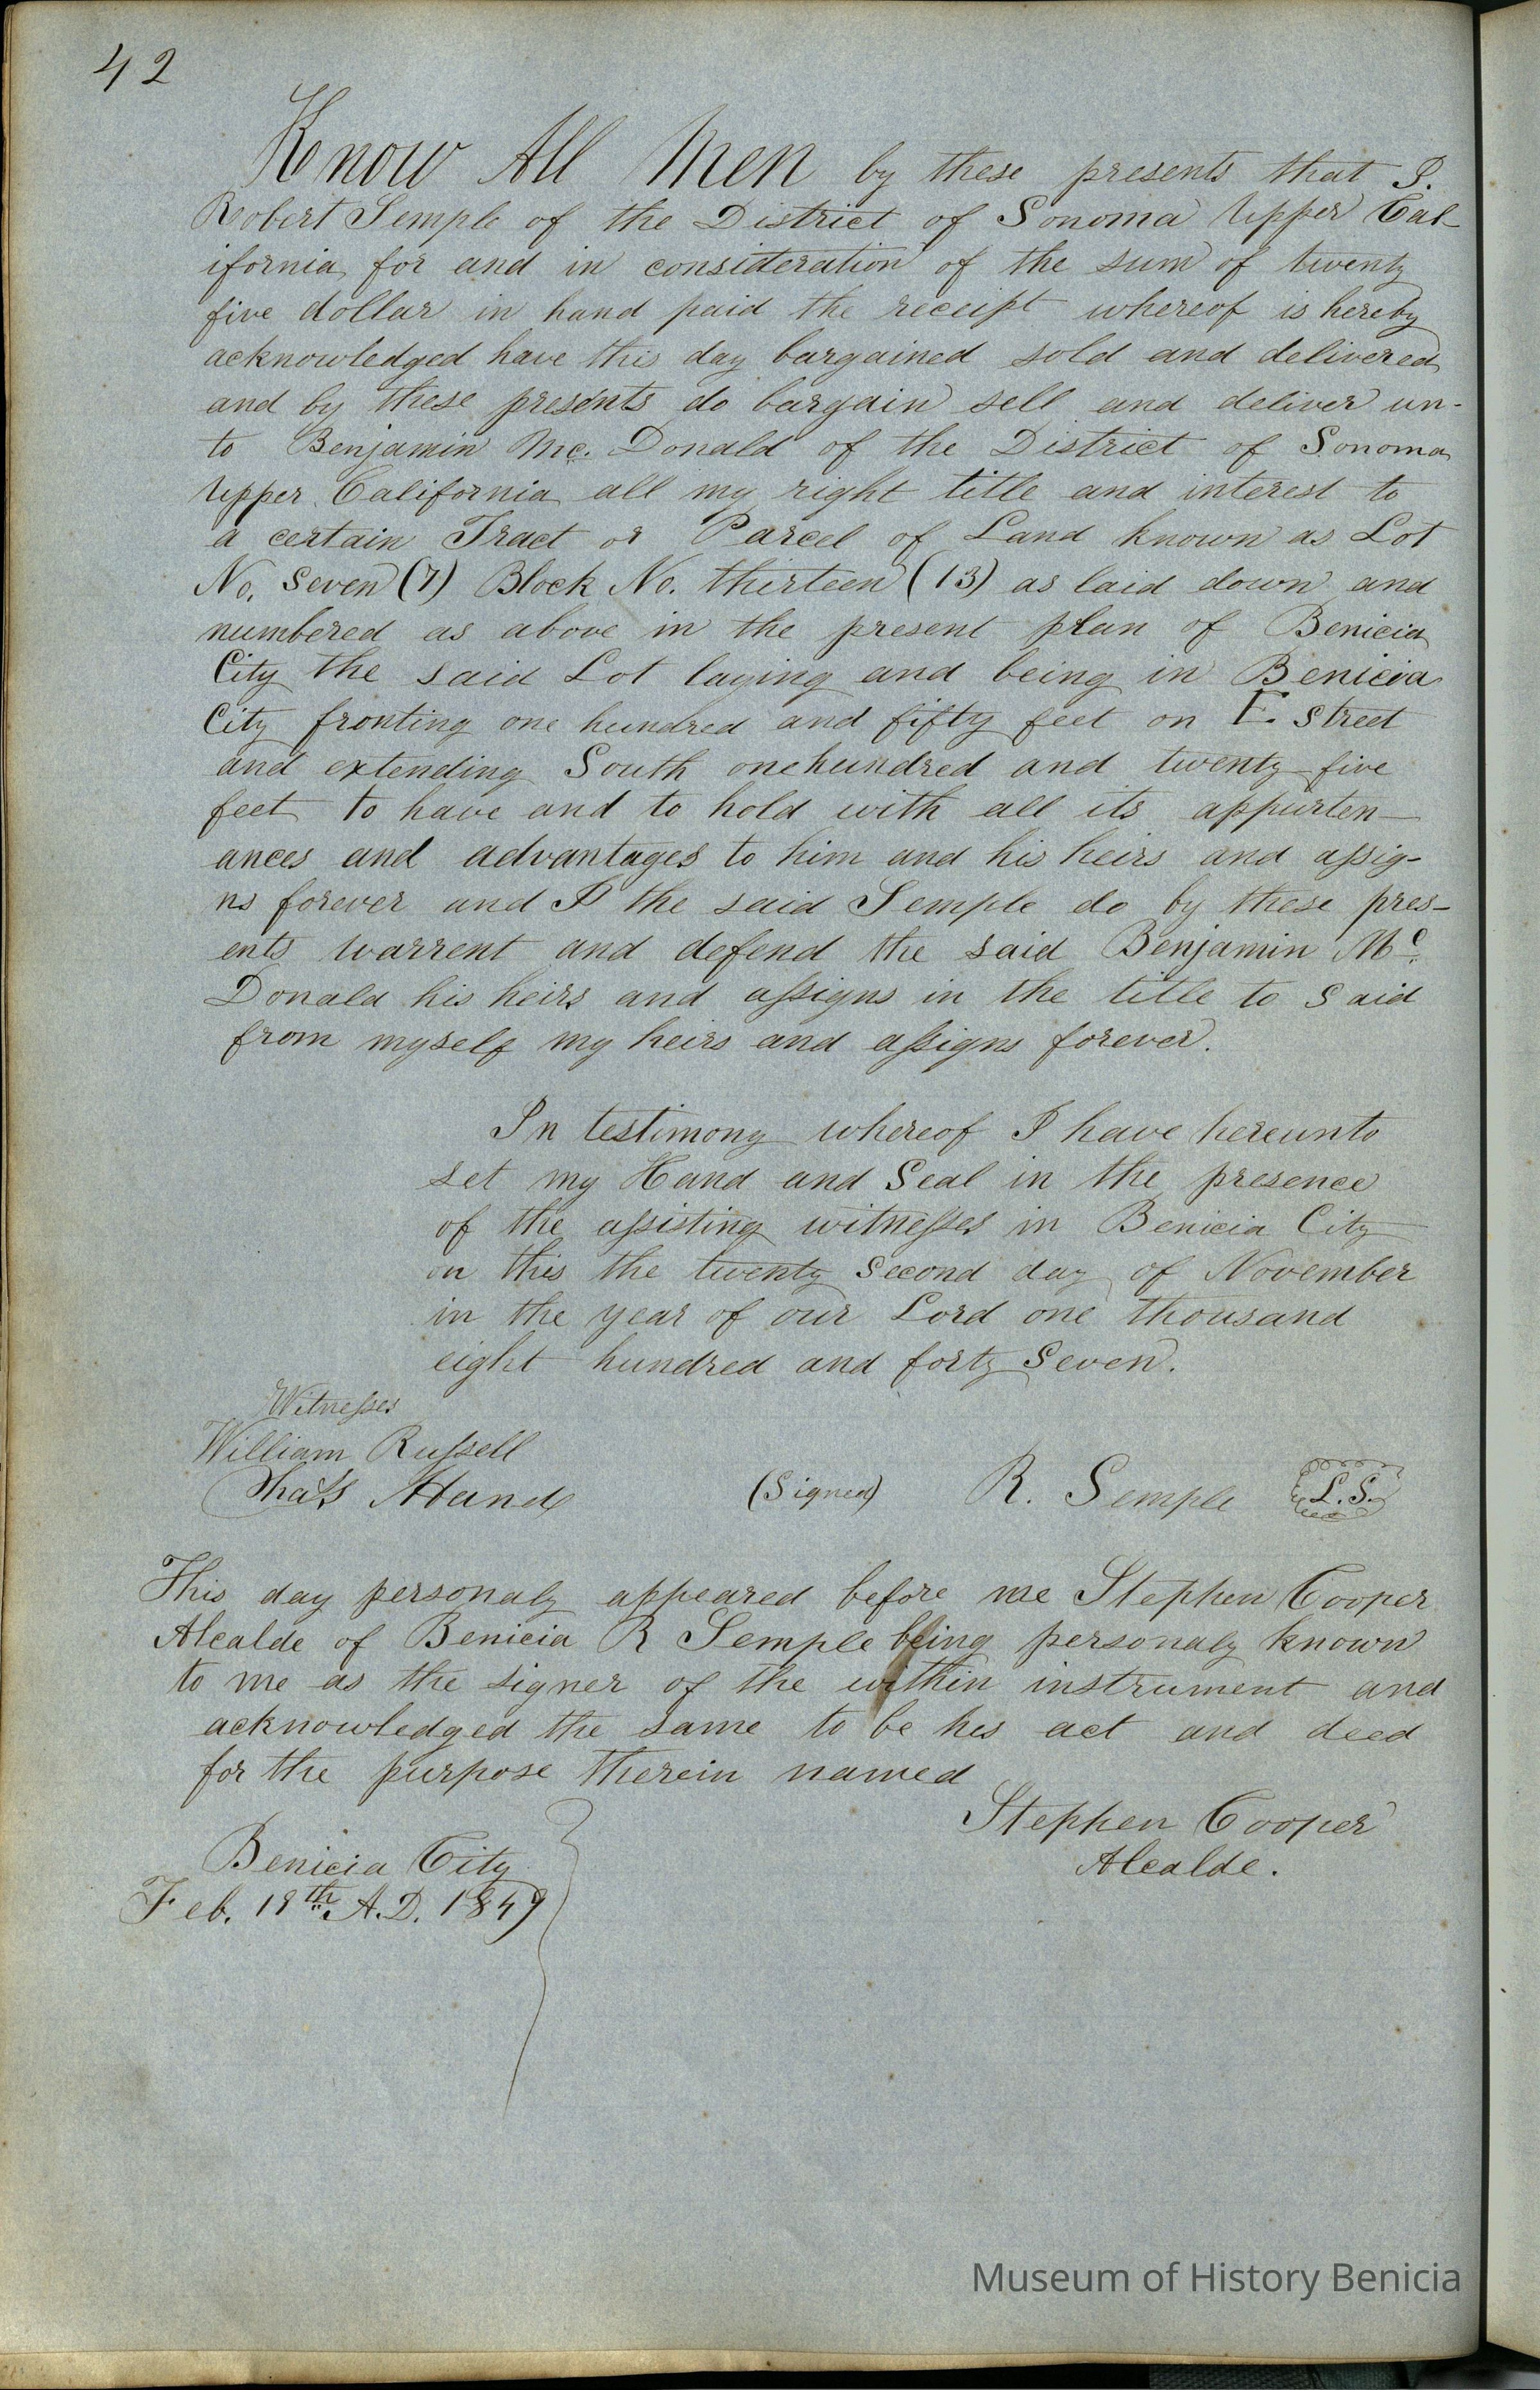 42
Know All Men by these presents that I.
Robert Semple of the District of Sonoma Upper Cal-
ifornia for and in consideration of the sum of twenty
five dollar in hand paid the receipt whereof is hereby
acknowledged have this day bargained sold and delivered
and by these presents do bargain sell and deliver un-
to Benjamin Mc. Donald of the District of Sonoma
Upper California all my right title and interest to
a certain Tract or Parcel of Land known as Lot
No. Seven (7) Block No. thirteen (13) as laid down and
numbered as above in the present plan of Benicia
City the said Lot laying and being in Benicia
City fronting one hundred and fifty feet on E. Street
and extending South one hundred and twenty five
feet to have and to hold with all its appurten-
ances and advantages to him and his heirs and assig-
ns forever and I the said Semple do by these pres-
ents warrent and defend the said Benjamin Mc.
Donald his heirs and assigns in the title to said
from myself my heirs and assigns forever.
In testimony whereof I have hereunto
set my Hand and Seal in the presence
of the assisting witnesses in Benicia City
on this the twenty Second day of November
in the year of our Lord one thousand
eight hundred and forty Seven.
Witnesses
William Russell
Hand (Signed) R. Semple L.S.
This day personaly appeared before me Stephen Cooper
Alcalde of Benicia R Semple being personaly known
to me as the signer of the within instrument and
acknowledged the same to be his act and deed
for the purpose therein named
Stephen Cooper
Alcalde.
Benicia City
Feb. 18th A.D. 1849
Museum of History Benicia